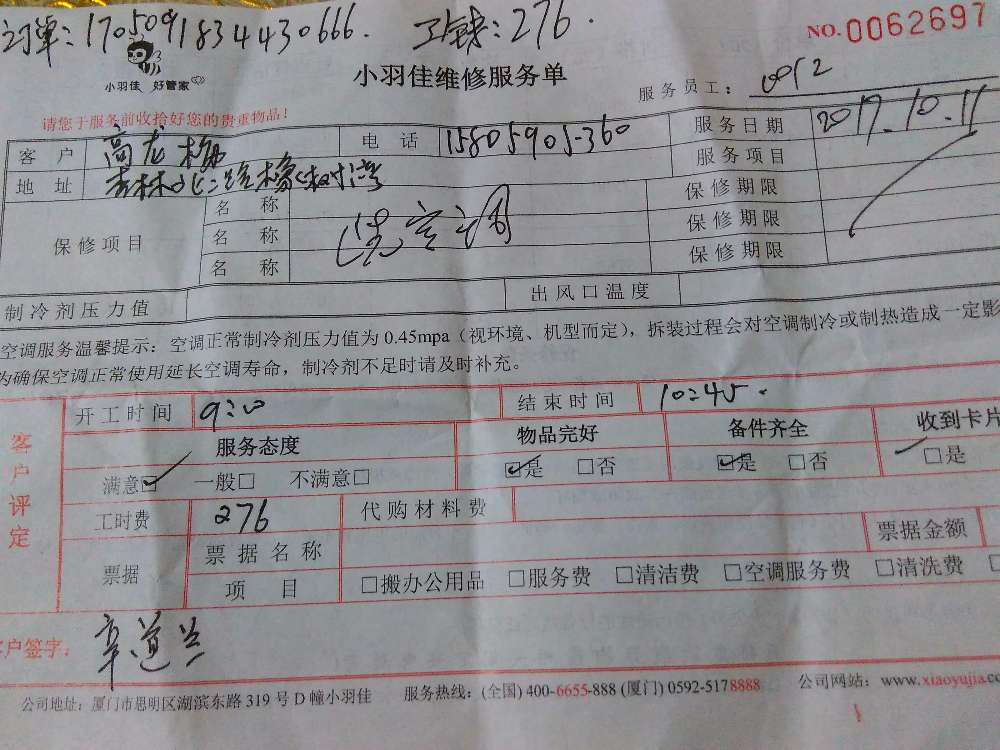 订单:1705091834430666. 工钱:276.
NO.0062697
小羽佳 好管家
小羽佳维修服务单
服务员工: 0052
请您于服务前收拾好您的贵重物品!
客户 高龙 电话 15805905360 服务日期 2017.10.11
地址 吉林北二路橡树湾 服务项目
保修项目 名称 洗空调 保修期限
名称 保修期限
名称 保修期限
制冷剂压力值 出风口温度
空调服务温馨提示:空调正常制冷剂压力值为 0.45mpa(视环境、机型而定),拆装过程会对空调制冷或制热造成一定影
为确保空调正常使用延长空调寿命,制冷剂不足时请及时补充。
客户评定
开工时间 9:00 结束时间 10:45.
服务态度 物品完好 备件齐全 收到卡片
满意☑ 一般□ 不满意□ ☑是 □否 ☑是 □否 □是
工时费 276 代购材料费
票据 票据名称 票据金额
项目 □搬办公用品 □服务费 □清洁费 □空调服务费 □清洗费
客户签字: 辛道兰
公司地址:厦门市思明区湖滨东路 319 号 D 幢小羽佳 服务热线:(全国) 400-6655-888 (厦门) 0592-5178888 公司网站:www.xiaoyujia.c